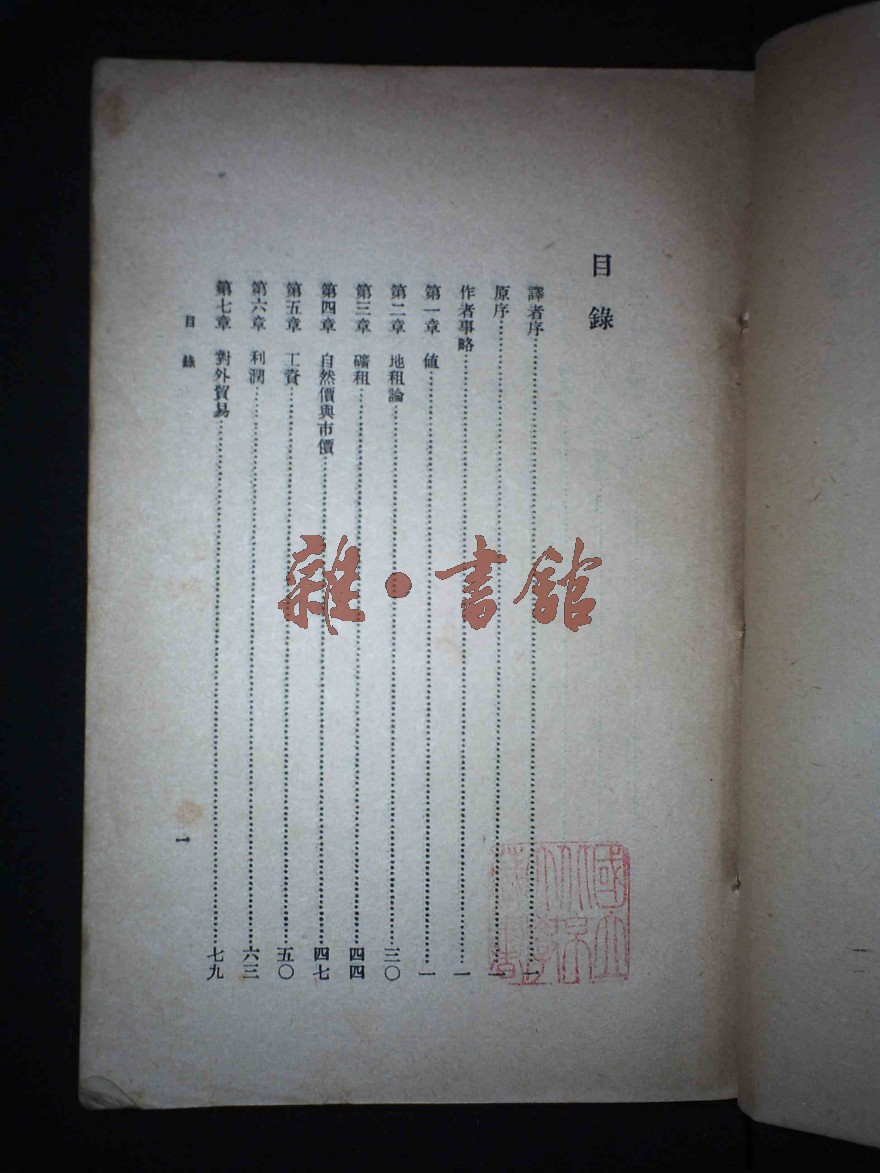 目錄
譯者序……一
原序……一
作者事略……一
第一章 值……一
第二章 地租論……三〇
第三章 礦租……四四
第四章 自然價與市價……四七
第五章 工資……五〇
第六章 利潤……六三
第七章 對外貿易……七九
目錄
一
雜·書館
國立